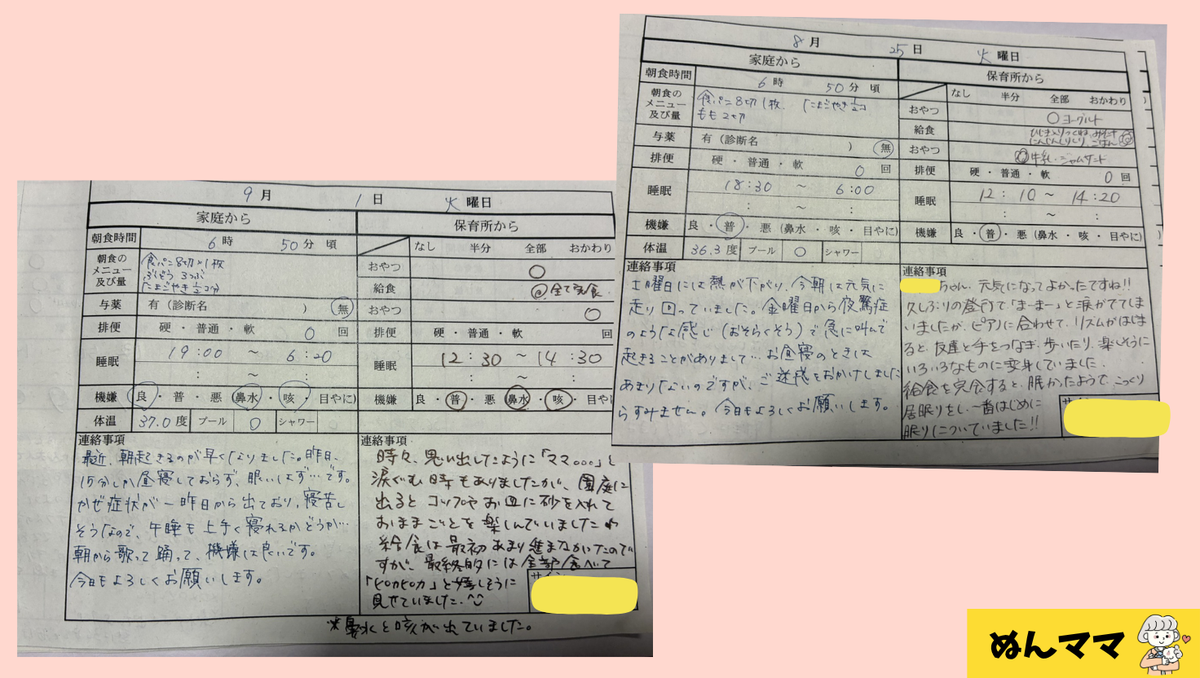 9月 1日 火曜日
家庭から
保育所から
朝食時間
6時 50分頃
なし 半分 全部 おかわり
朝食のメニュー及び量
食パン8切り1枚
ぶどう 3つぶ
たまごやき 1/2コ分
おやつ ○
給食 ◎全て完食
おやつ ○
与薬 有(診断名 ) 無
排便 硬・普通・軟 0回
排便 硬・普通・軟 回
睡眠 19:00 ~ 6:20
: ~ :
睡眠 12:30 ~ 14:30
: ~ :
機嫌 良・普・悪(鼻水・咳・目やに)
機嫌 良・普・悪(鼻水・咳・目や
体温 37.0度 プール ○ シャワー
連絡事項
最近、朝起きるのが早くなりました。昨日、
15分しか昼寝しておらず、眠いはず…です。
かぜ症状が一昨日から出ており、寝苦し
そうなので、午睡も上手く寝れるかどうか…
朝から歌って踊って、機嫌は良いです。
今日もよろしくお願いします。
連絡事項
時々、思い出したように「ママ。。。」と
涙ぐむ時もありましたが、園庭に
出るとコップやお皿に砂を入れて
おままごとを楽しんでいました
給食は最初あまり進まなかったので
すが、最終的には全部食べて
「ピカピカ」と嬉しそうに
見せていました。^^
サイン
※鼻水と咳が出ていました。
8月 25日 火曜日
家庭から
保育所から
朝食時間
6時 50分頃
なし 半分 全部 おかわり
朝食のメニュー及び量
食パン8切1枚、たまごやき1/2コ
もも2切
おやつ ○ヨーグルト
給食
にんじんしりしり、ごはん
おやつ ◎牛乳・ジャムサンド
与薬 有(診断名 ) 無
排便 硬・普通・軟 0回
排便 硬・普通・軟 0回
睡眠 18:30 ~ 6:00
: ~ :
睡眠 12:10 ~ 14:20
: ~ :
機嫌 良・普・悪(鼻水・咳・目やに)
機嫌 良・普・悪(鼻水・咳・目やに)
体温 36.3度 プール ○ シャワー
連絡事項
土曜日には熱が下がり、今朝は元気に
走り回っていました。金曜日から夜驚症
のような感じ(おそらくそう)で急に叫んで
起きることがありまして…お昼寝のときは
あまりないのですが、ご迷惑をおかけしました
らすみません。今日もよろしくお願いします。
連絡事項
ちゃん、元気になってよかったですね!!
久しぶりの登所で「まーまー」と涙がでてし
まいましたが、ピアノに合わせて、リズムがはじま
ると、友達と手をつなぎ、歩いたり、楽しそうに
いろいろなものに変身していました。
給食を完食すると、眠かったようで、こっくり
居眠りをし、一番はじめに
眠りについていました!!
ぬんママ